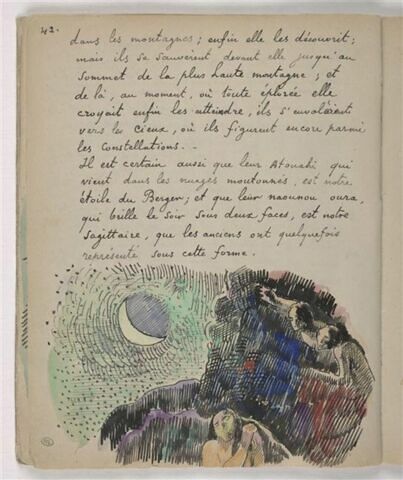 42.
dans les montagnes; enfin elle les découvrit;
mais ils se sauvèrent devant elle jusqu'au
sommet de la plus haute montagne; et
de là, au moment, où toute éplorée elle
croyait enfin les atteindre, ils s'envolèrent
vers les cieux, où ils figurent encore parmi
les Constellations. -
Il est certain aussi que leur Atouahi qui
vient dans les nuages moutonnés, est notre
étoile du Berger; et que leur naounou oura,
qui brille le soir sous deux faces, est notre
Sagittaire, que les anciens ont quelquefois
représenté sous cette forme.